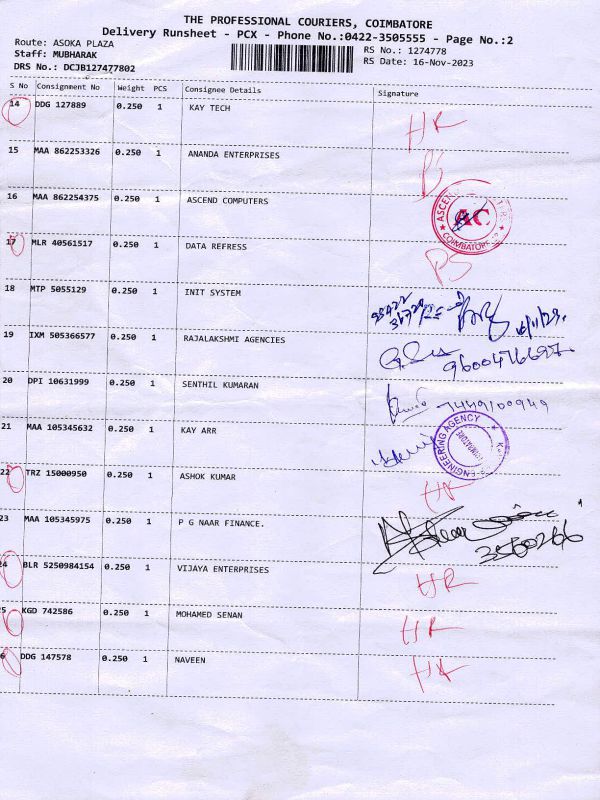 THE PROFESSIONAL COURIERS, COIMBATORE
Delivery Runsheet - PCX - Phone No.:0422-3505555 - Page No.:2
Route: ASOKA PLAZA RS No.: 1274778
Staff: MUBHARAK RS Date: 16-Nov-2023
DRS No.: DCJB127477802
S No Consignment No Weight PCS Consignee Details Signature
14 DDG 127889 0.250 1 KAY TECH HR
15 MAA 862253326 0.250 1 ANANDA ENTERPRISES PS
16 MAA 862254375 0.250 1 ASCEND COMPUTERS AC COIMBATORE
17 MLR 40561517 0.250 1 DATA REFRESS PS
18 MTP 5055129 0.250 1 INIT SYSTEM
19 IXM 505366577 0.250 1 RAJALAKSHMI AGENCIES 9600476697
20 DPI 10631999 0.250 1 SENTHIL KUMARAN 7449100949
21 MAA 105345632 0.250 1 KAY ARR ENGINEERING AGENCY
22 TRZ 15000950 0.250 1 ASHOK KUMAR HR
23 MAA 105345975 0.250 1 P G NAAR FINANCE.
24 BLR 5250984154 0.250 1 VIJAYA ENTERPRISES HR
25 KGD 742586 0.250 1 MOHAMED SENAN HR
6 DDG 147578 0.250 1 NAVEEN HR